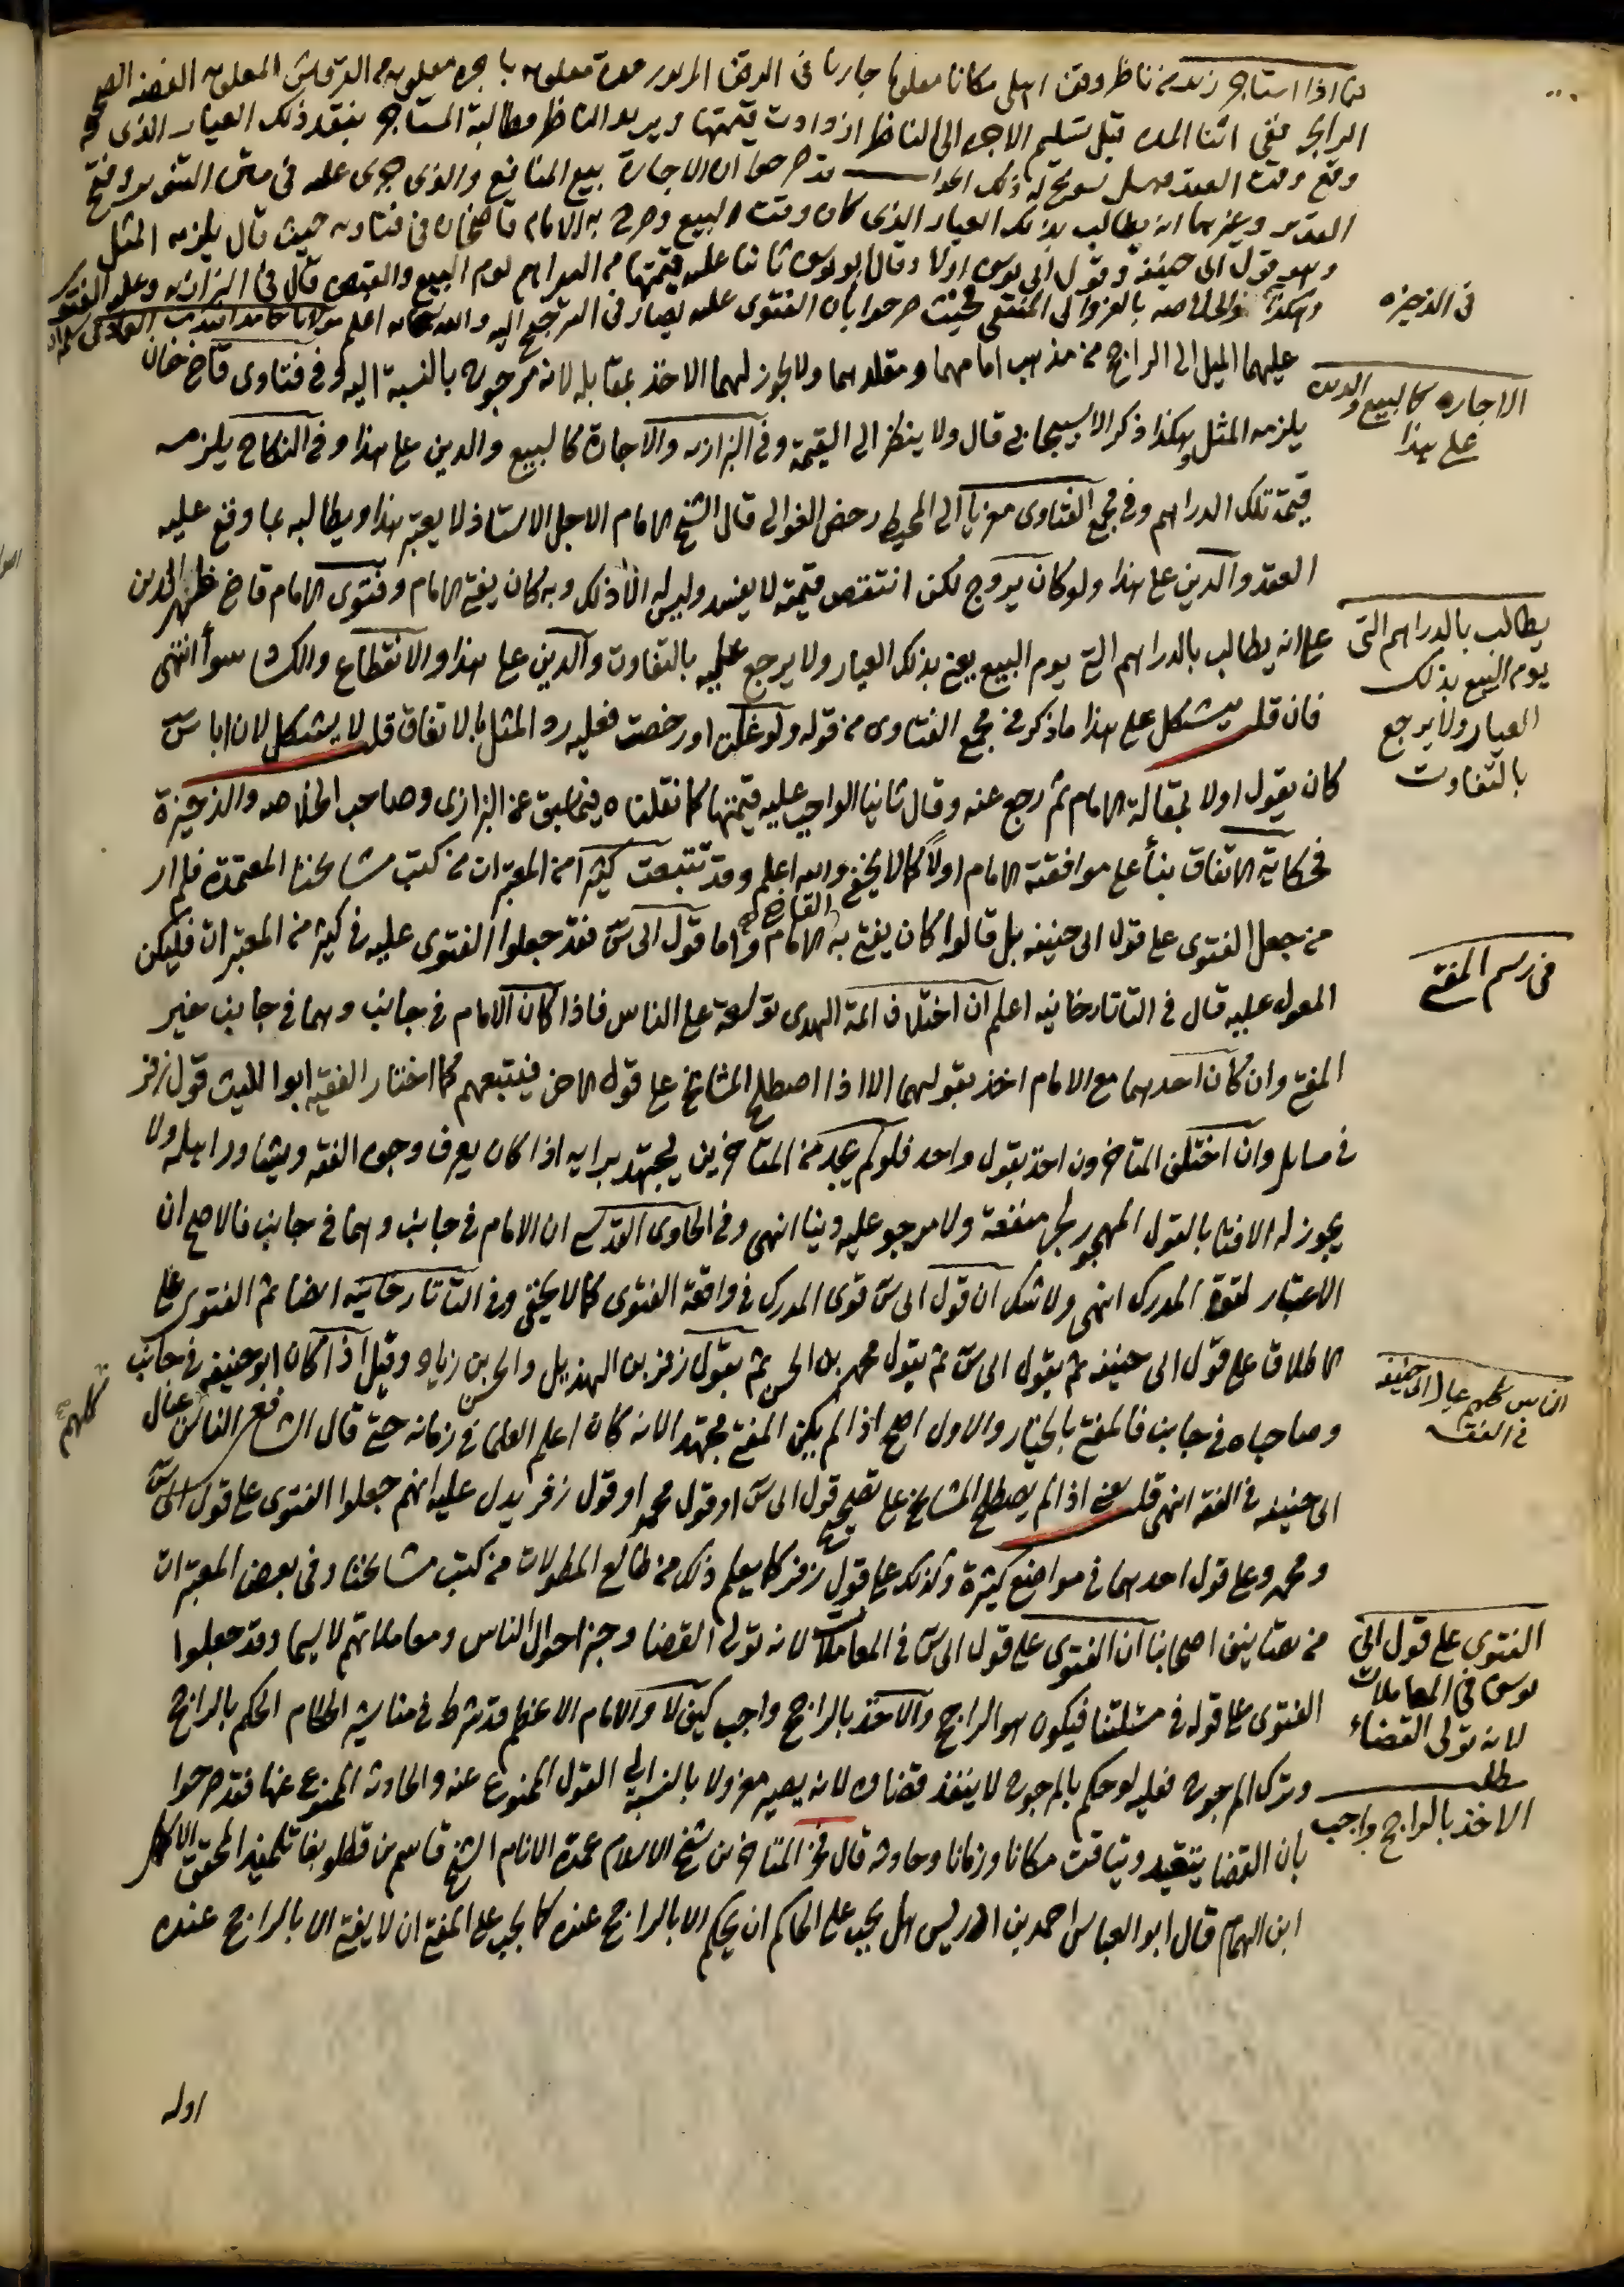 فيما اذا استاجر زيد من ناظر وقف اهلي مكانا معلوما جاريا في الوقف المزبور مدة معلومه باجرة معلومه من القروش المعلومه الفضه الصحيحة
الرايجة ففي اثنا المده قبل تسليم الاجره الى الناظر ازدادت قيمتها ويريد الناظر مطالبة المستاجر بنقد ذلك العيار الذي
وقع وقت العقد فهل يسوغ له ذلك الجواب قد صرحوا ان الاجارة بيع المنافع والذي جرى عليه في متن التنوير وفتح
القدير وغيرهما انه يطالب بذلك العيار الذي كان وقت البيع وصرح به الامام قاضيخان في فتاويه حيث قال يلزمه المثل
وهو قول ابي حنيفة وقول ابي يوسف اولا وقال ابو يوسف ثانيا عليه قيمتها من الدراهم يوم البيع والقبض قال في البزازيه وعليه الفتوى
وهكذا في الخلاصه بالعزو الى المنتقى فحيث صرحوا بان الفتوى عليه يصار في الترجيح اليه والله سبحانه اعلم
عليهما الميل الى الراجح من مذهب امامهما ومقلدهما ولا يجوز لهما الاخذ بمقابله لانه مرجوح بالنسبة اليه وفي فتاوى قاضي خان
يلزمه المثل وهكذا ذكر الاسبيجابي قال ولا ينظر الى القيمة وفي البزازيه والاجارة كالبيع والدين على هذا وفي النكاح يلزمه
قيمة تلك الدراهم وفي مجمع الفتاوى معزيا الى المحيط رخص الغوالى قال الشيخ الامام الاجل الاستاذ لا يعتبر هذا ويطالبه بما وقع عليه
العقد والدين على هذا ولو كان يروج لكن انتقص قيمته لا يفسد وليس له الا ذلك وبه كان يفتي الامام وفتوى الامام قاضي ظهير الدين
على انه يطالب بالدراهم التي يوم البيع يعني بذلك العيار ولا يرجع عليه بالتفاوت والدين على هذا والانقطاع والكساد سوأ انتهى
فان قلت يشكل على هذا ما ذكر في مجمع الفتاوى من قوله ولو غلت او رخصت فعليه رد المثل بالاتفاق قلت لا يشكل لان اباس
كان يقول اولا بمقالة الامام ثم رجع عنه وقال ثانيا الواجب عليه قيمتها كما نقلناه فيما سبق عن البزازي وصاحب الخلاصه والذخيرة
فحكاية الاتفاق بنأ على موافقته الامام اولاً كما لا يخفى والله اعلم وقد تتبعت كثيرا من المعتبرات من كتب مشايخنا المعتمدة فلم ار
من جعل الفتوى على قول ابي حنيفه بل قالوا كان يفتي به الامام القاضي واما قول ابي س فقد جعلوا الفتوى عليه في كثير من المعتبرات فليكن
المعول عليه قال في التاتارخانيه اعلم ان اختلاف ائمة الهدى توسعة على الناس فاذا كان الامام في جانب وهما في جانب خير
المفتي وان كان احدهما مع الامام اخذ بقولهما الا اذا اصطلح المشايخ على قول الاخر فيتبعهم كما اختار الفقيه ابو الليث قول زفر
في مسايل وان اختلف المتاخرون اخذ بقول واحد فلو لم يجد من المتاخرين يجتهد برايه اذا كان يعرف وجوه الفقه ويشاور اهله ولا
يجوز له الافتا بالقول المهجور لجر منفعة ولا مرجو عليه دنيا انتهى وفي الحاوي القدسي ان الامام في جانب وهما في جانب فالاصح ان
الاعتبار لقوة المدرك انتهى ولا شك ان قول ابي س قوى المدرك في واقعة الفتوى كما لا يخفى وفي التاتارخانيه ايضا ثم الفتوى على
الاطلاق على قول ابي حنيفه ثم بقول ابي س ثم بقول محمد بن الحسن ثم بقول زفر بن الهذيل والحسن بن زياد وقيل اذا كان ابو حنيفه في جانب
وصاحباه في جانب فالمفتي بالخيار والاول اصح اذا لم يكن المفتي مجتهدا لانه كان اعلم العلما في زمانه حتى قال الشافعي الناس كلهم عيال
ابي حنيفه في الفقه انتهى قلت يعني اذا لم يصطلح المشايخ على تصحيح قول ابي س او قول محمد او قول زفر يدل عليه انهم جعلوا الفتوى على قول ابي س
ومحمد وعلى قول احدهما في مواضع كثيرة وكذلك على قول زفر كما يعلم ذلك من طالع المطولات من كتب مشايخنا وفي بعض المعتبرات
من تصانيف اصحابنا ان الفتوى على قول ابي س في المعاملات لانه تولى القضا وخبر احوال الناس ومعاملاتهم لا سيما وقد جعلوا
الفتوى على قوله في مسئلتنا فيكون هو الراجح والاخذ بالراجح واجب كيف لا والامام الاعظم قد شرط في مناشير الحكام الحكم بالراجح
وترك المرجوح فعليه لو حكم بالمرجوح لا ينفذ قضاوه لانه يصير معزولا بالنسبة الى القول الممنوع عنه والحادث الممنوع عنها فقد صرحوا
بان القضا يتقيد ويتاقت مكانا وزمانا وحادثه قال فخر المتاخرين شيخ الاسلام عمدة الانام الشيخ قاسم بن قطلوبغا تلميذ المحقق الاكمل
ابن الهمام قال ابو العباس احمد بن ادريس هل يجب على الحاكم ان يحكم الا بالراجح عنده كما يجب على المفتي ان لا يفتي الا بالراجح عنده
اوله
في الذخيره
الاجاره كالبيع والدين
على هذا
يطالب بالدراهم التي
يوم البيع بذلك
العيار ولا يرجع
بالتفاوت
في رسم المفتي
الناس كلهم عيال ابي حنيفه
في الفقه
كلهم
الفتوى على قول ابي
يوسف في المعاملات
لانه تولى القضاء
مطلب
الاخذ بالراجح واجب